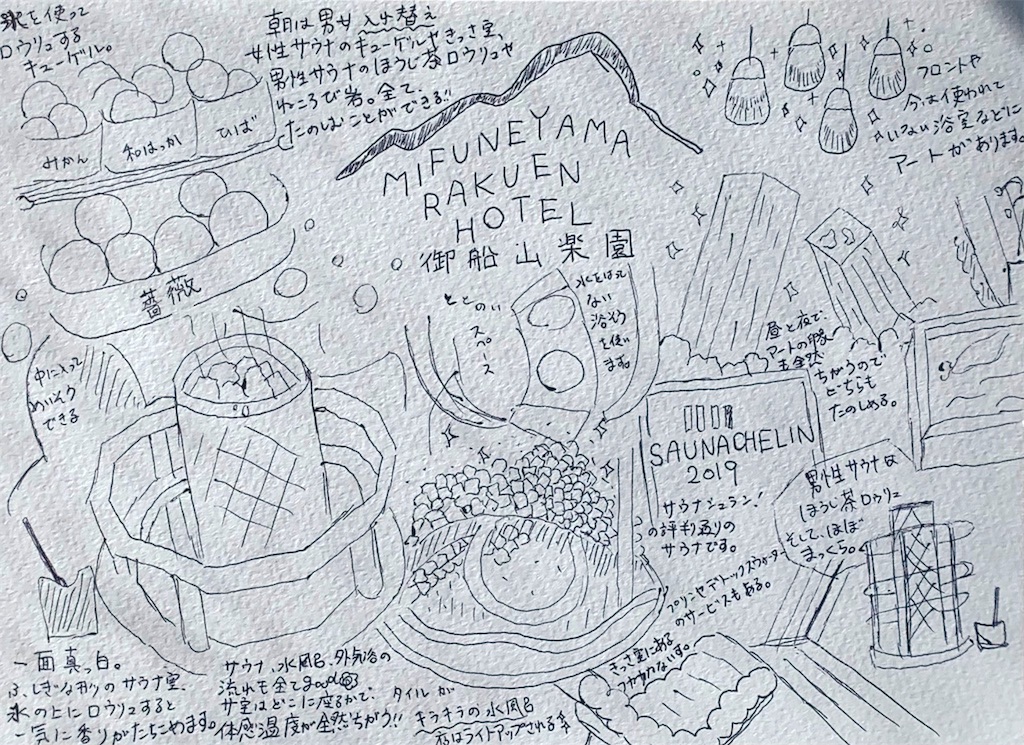 氷を使って
ロウリュする
キューゲル。
みかん
和はっか
ひば
薔薇
朝は男女入れ替え
女性サウナのキューゲルやきっさ室、
男性サウナのほうじ茶ロウリュや
ねころび岩。全て、
たのしむことができる!!
MIFUNEYAMA
RAKUEN
HOTEL
御船山楽園
フロントや
今は使われて
いない浴室などに
アートがあります。
ととのい
スペース
水をはって
ない
浴そう
を使い
ます。
昼と夜で、
アートの印象
も全然
ちがうので
どちらも
たのしめる。
中に入って
めいそう
できる
SAUNACHELIN
2019
サウナシュラン!
の評判通りの
サウナです。
男性サウナは
ほうじ茶ロウリュ
そして、ほぼ
まっくら。
プリンやデトックスウォーター
のサービスもある。
きっさ室にある
フカフカないす。
一面真っ白。
ふしぎな形のサウナ室。
氷の上にロウリュすると
一気に香りがたちこめます。
サウナ、水風呂、外気浴の
流れも全てgood
サ室はどこに座るかで、
体感温度が全然ちがう!!
タイルが
キラキラの水風呂
夜はライトアップされる